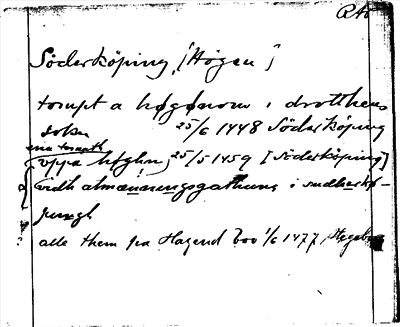 RAö
Söderköping, [Högen]
tompt a høgønom i drotthens
sokn 25/6 1448 Söderköping
ena tompth
uppa høghn, 25/5 1459 [Söderköping]
vidh almænningsgathuna i sudherkø-
pungh
alle them pa Hagend Eoo 1/6 1477, Hegebo